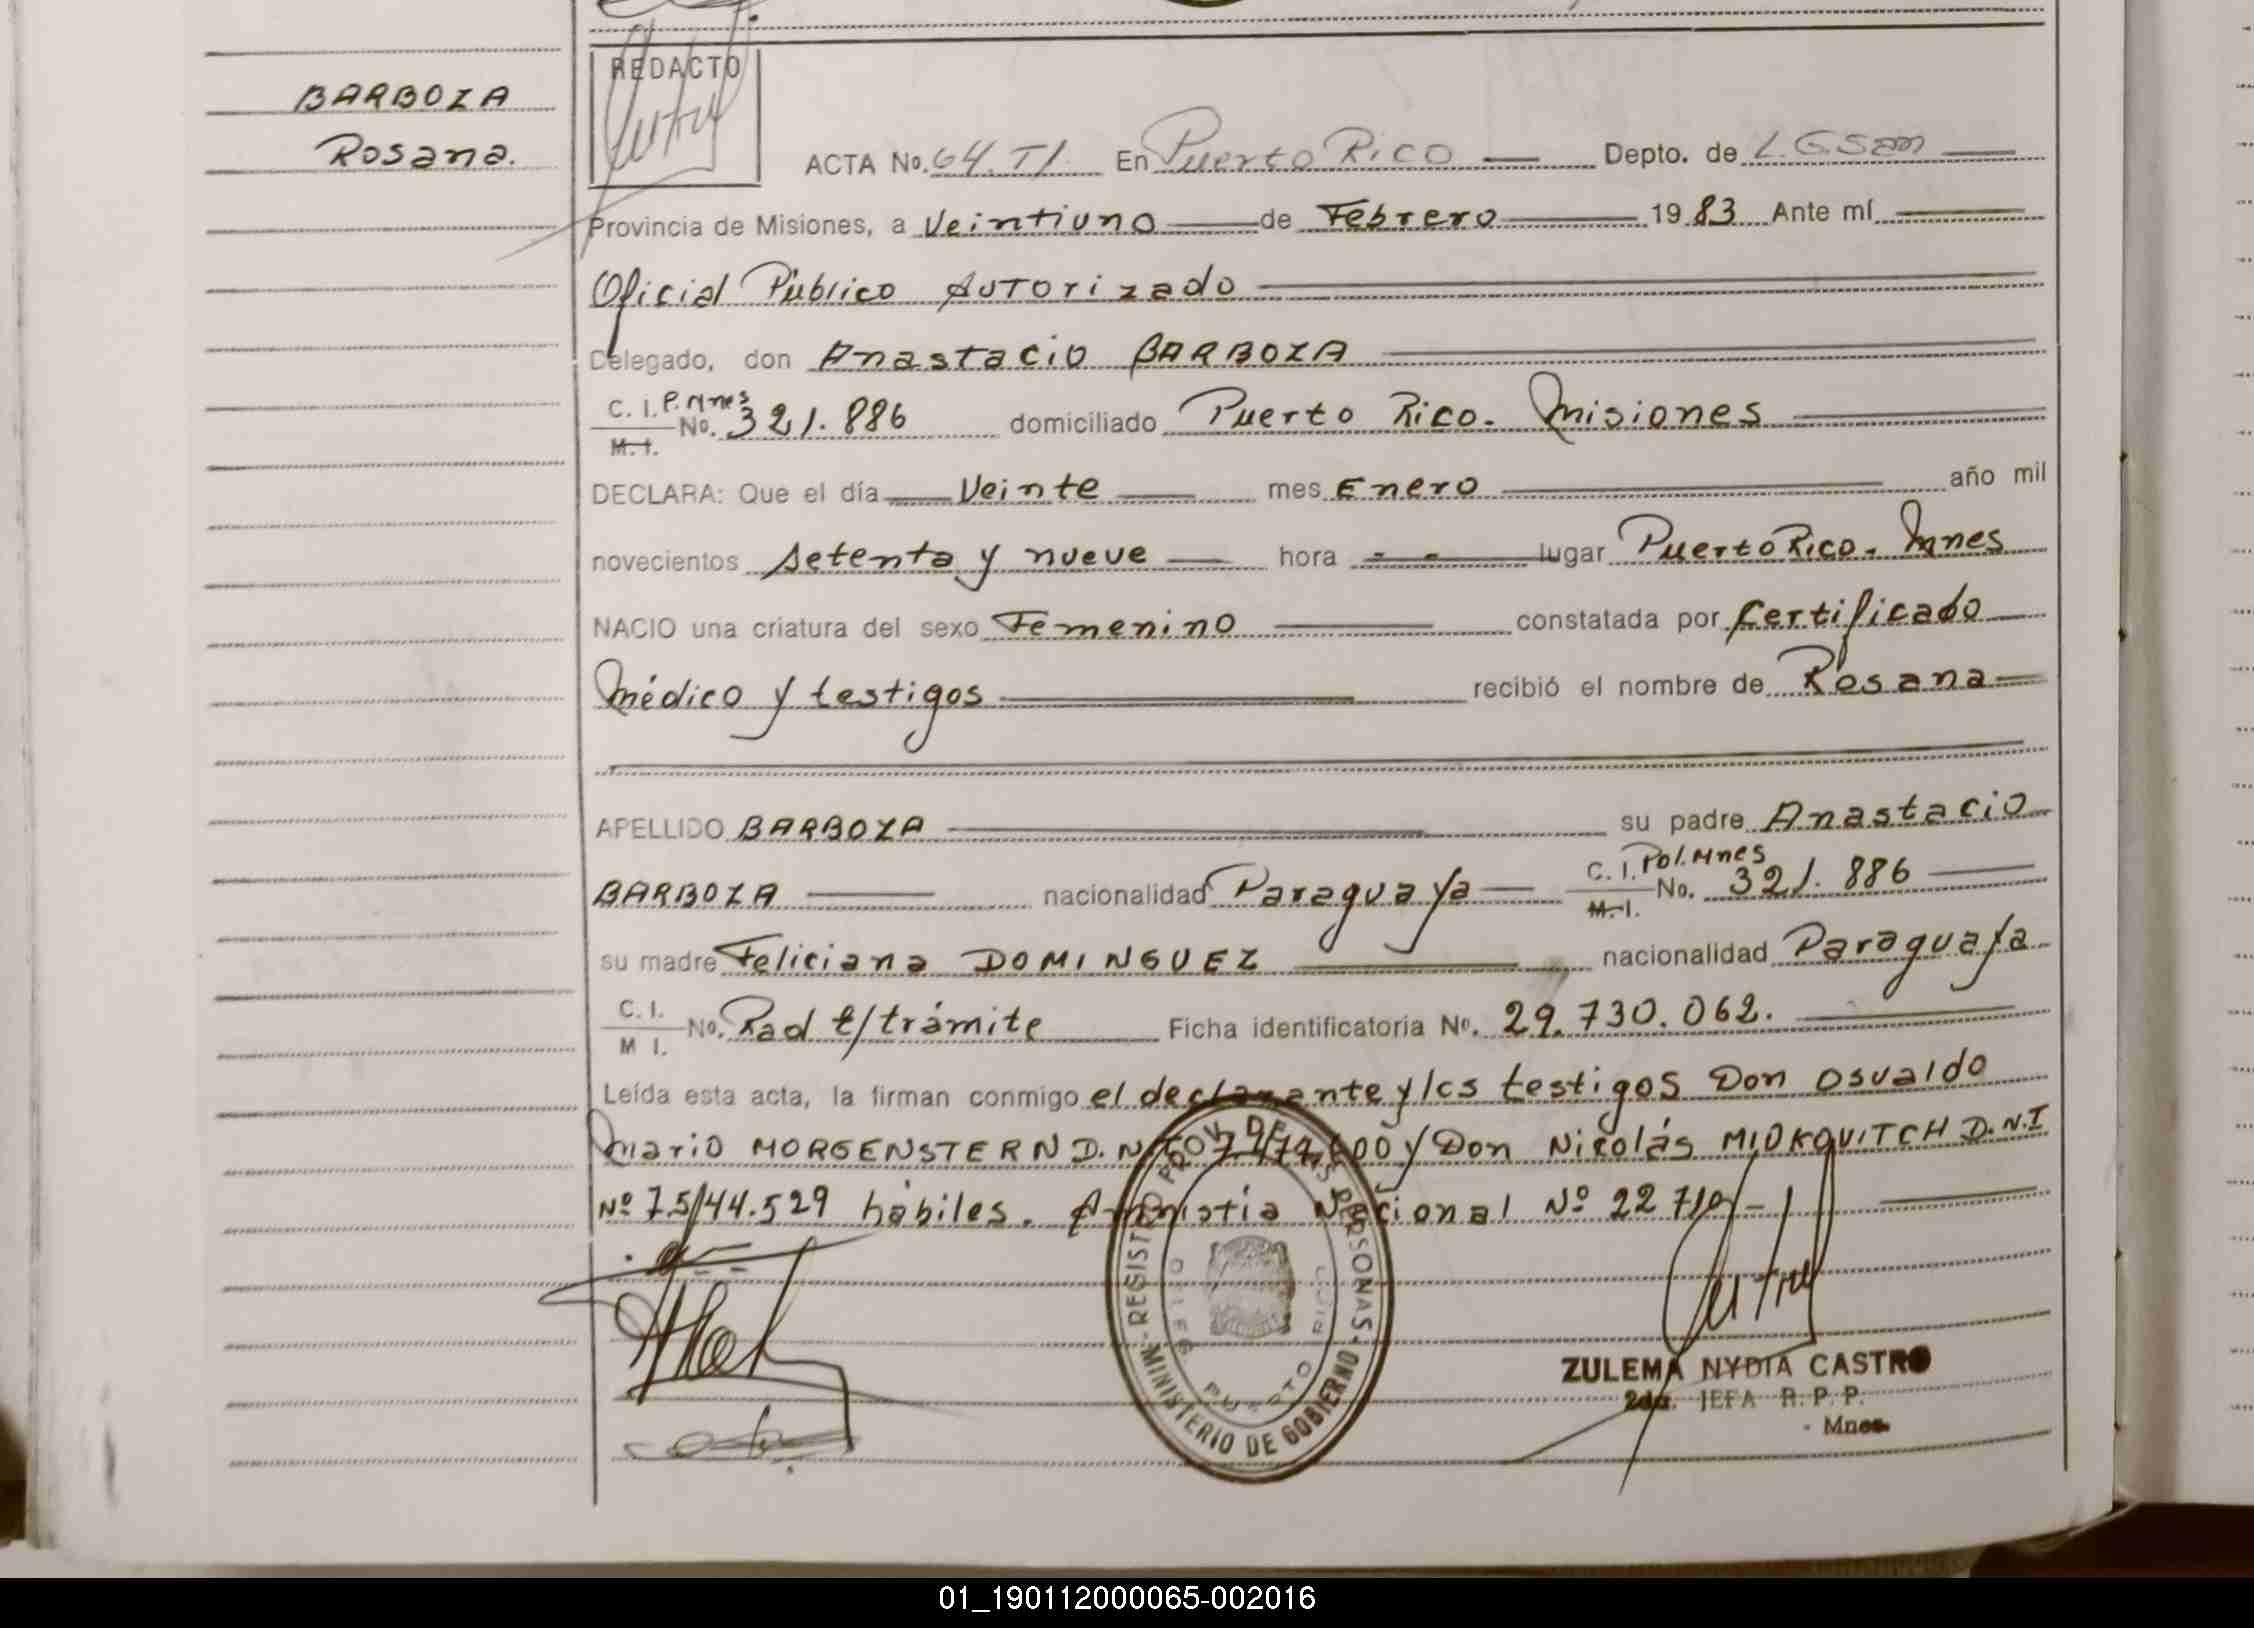 BARBOZA
Rosana.
REDACTO
ACTA No. 64. TI. En Puerto Rico Depto. de L.G.S.an
Provincia de Misiones, a Veintiuno de Febrero 1983 Ante mí
Oficial Público Autorizado
Delegado, don Anastacio BARBOZA
C. I. P. Mnes
M. I. No. 321.886 domiciliado Puerto Rico. Misiones
DECLARA: Que el día Veinte mes Enero año mil
novecientos setenta y nueve hora - - lugar Puerto Rico. Mnes
NACIO una criatura del sexo Femenino constatada por Certificado
Médico y testigos recibió el nombre de Rosana
APELLIDO BARBOZA su padre Anastacio
BARBOZA nacionalidad Paraguaya C. I. Pol. Mnes M. I. No. 321.886
su madre Feliciana DOMINGUEZ nacionalidad Paraguaya
C. I.
M I. No. Rad t/trámite Ficha identificatoria No. 29.730.062.
Leída esta acta, la firman conmigo el declarante y los testigos Don Osvaldo
Mario MORGENSTERN D.N. y Don Nicolás MIOKOVITCH D.N.I
Nº 7.544.529 hábiles. Amnistía Nacional Nº 22710-
REGISTRO PROV. DE LAS PERSONAS
MINISTERIO DE GOBIERNO
DELEG. PUERTO RICO
ZULEMA NYDIA CASTRO
2da. JEFA R. P. P.
- Mnes
01_190112000065-002016